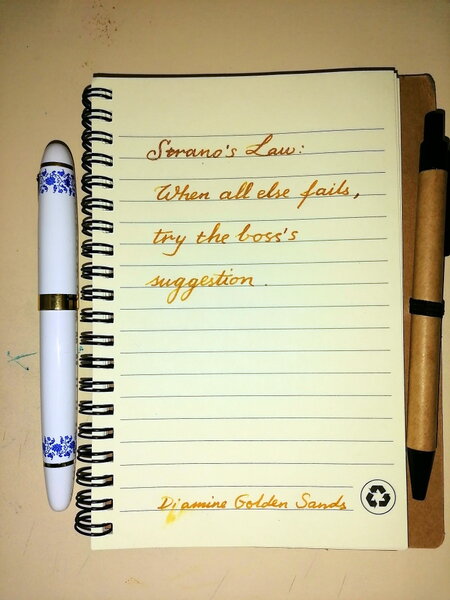 Strano's Law:
When all else fails,
try the boss's
suggestion.
Diamine Golden Sands